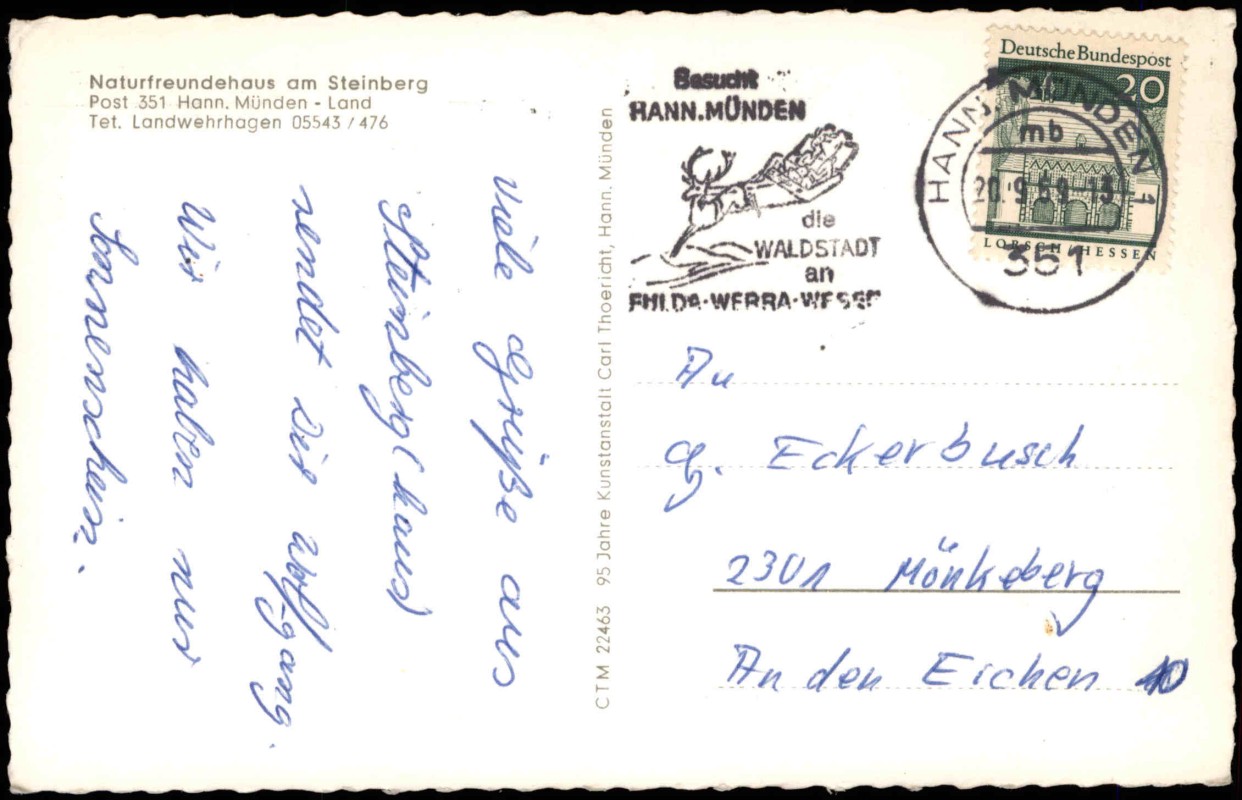 Naturfreundehaus am Steinberg
Post 351 Hann. Münden - Land
Tet. Landwehrhagen 05543 / 476
viele Grüße aus
Steinberg(haus)
sendet Dir Wolfgang.
Wir haben nur
Sonnenschein.
CTM 22463 95 Jahre Kunstanstalt Carl Thoericht, Hann. Münden
Besucht
HANN.MÜNDEN
die
WALDSTADT
an
FULDA·WERRA·WESER
Deutsche Bundespost
20
LORSCH / HESSEN
HANN. MÜNDEN 1
mb
20.-9.69-13
351
An
G. Eckerbusch
2301 Mönkeberg
An den Eichen 10